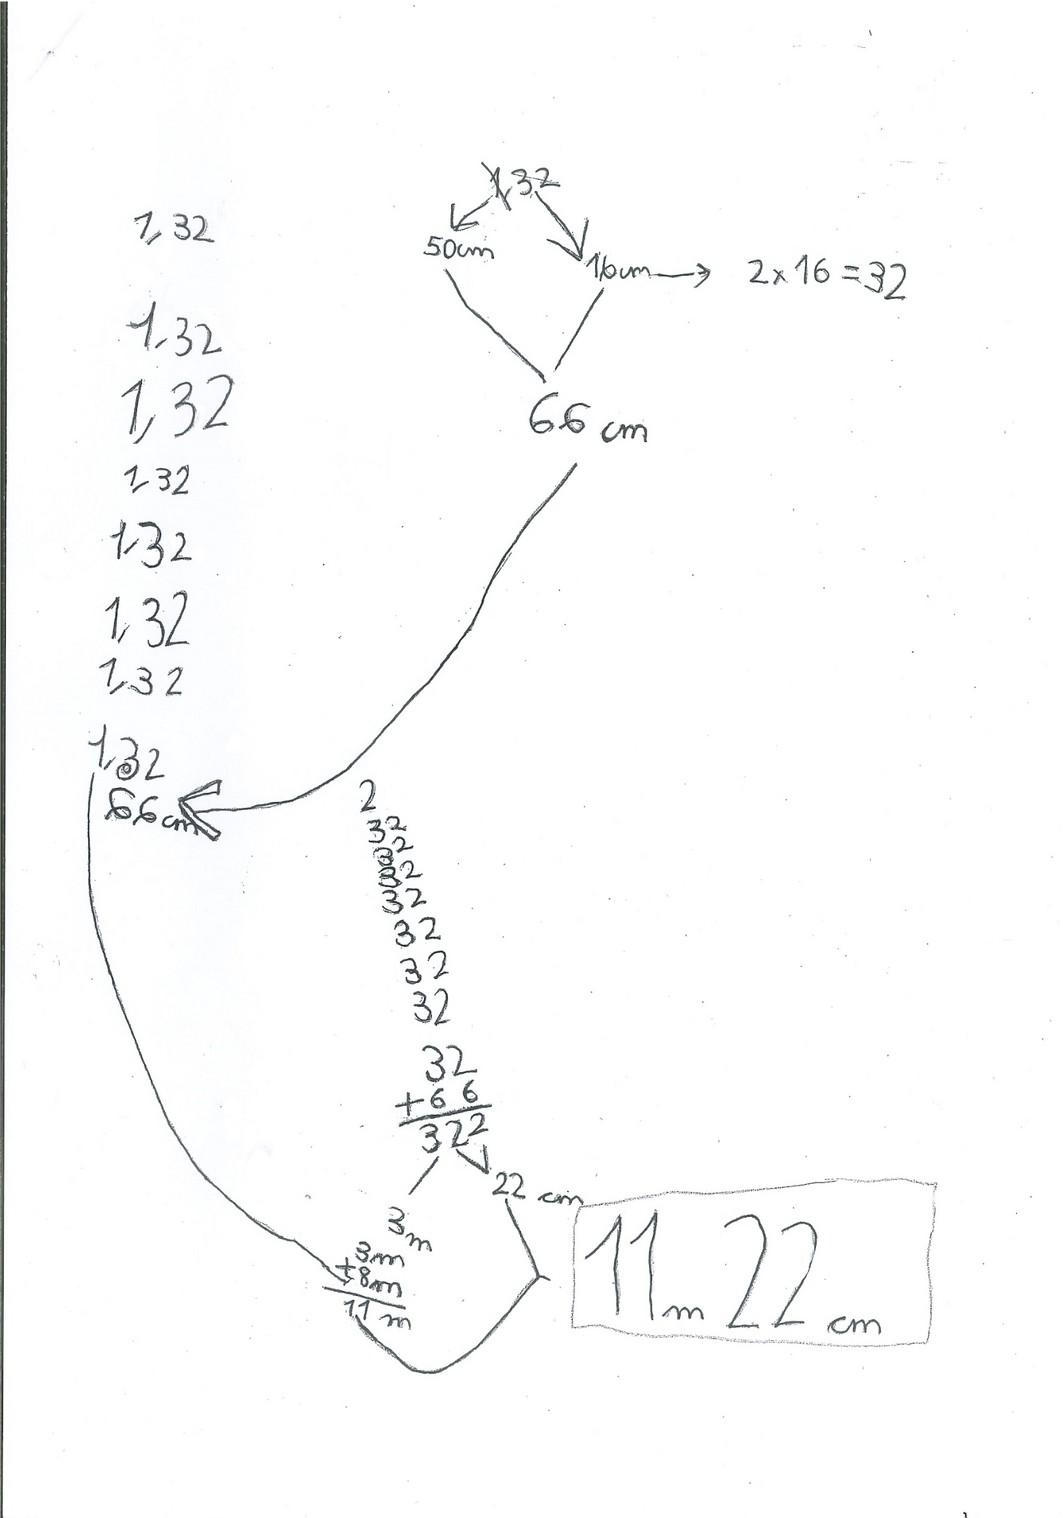 1,32
50cm
16cm → 2 x 16 = 32
66 cm
1,32
1,32
1,32
1,32
1,32
1,32
1,32
1,32
66 cm
2
32
32
32
32
32
32
32
32
+66
322
22 cm
3m
3m
+8m
11 m
11m 22 cm